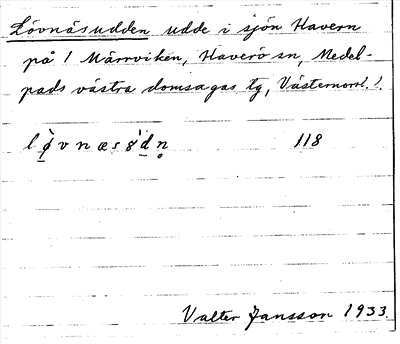 Lövnäsudden udde i sjön Havern
på / Märrviken, Haverö sn, Medel-
pads västra domsagas tg, Västernorrl. l.
lø̀vnæsɞ'dn̥ 118
Valter Jansson 1933.